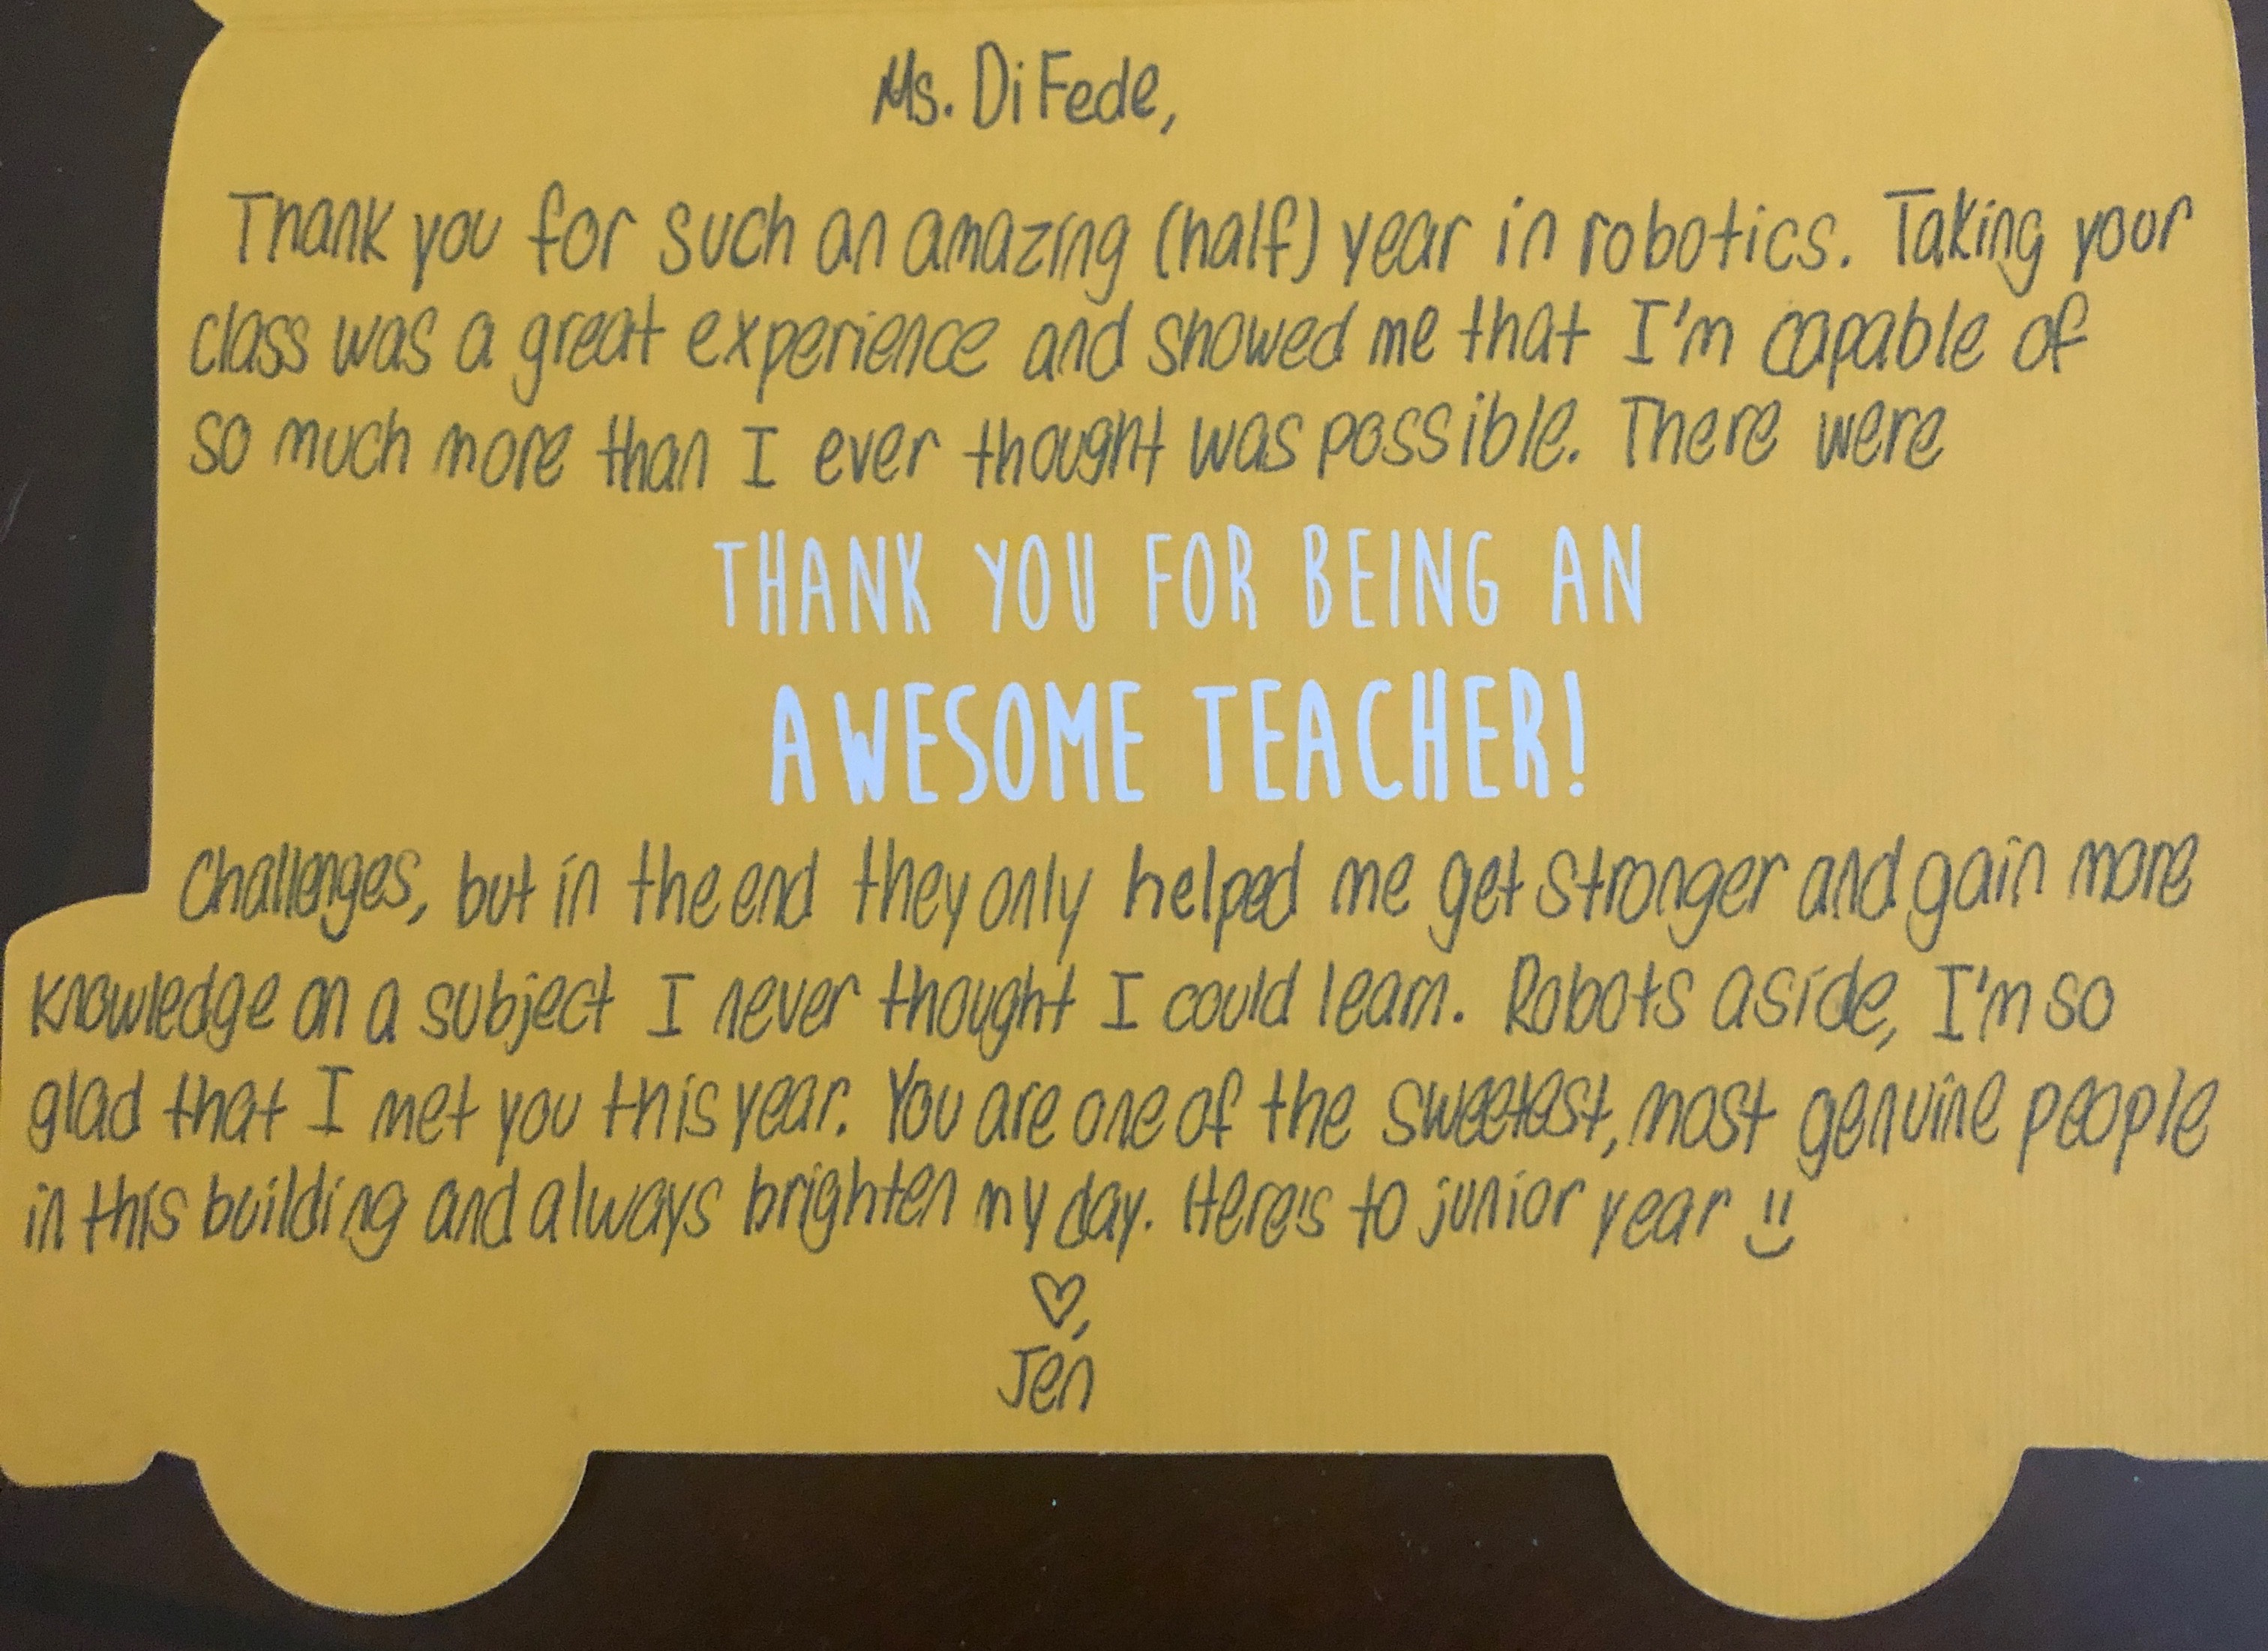 Ms. DiFede,
Thank you for such an amazing (half) year in robotics. Taking your
class was a great experience and showed me that I'm capable of
so much more than I ever thought was possible. There were
THANK YOU FOR BEING AN
AWESOME TEACHER!
Challenges, but in the end they only helped me get stronger and gain more
knowledge on a subject I never thought I could learn. Robots aside, I'm so
glad that I met you this year. You are one of the sweetest, most genuine people
in this building and always brighten my day. Here's to junior year :)
♡,
Jen